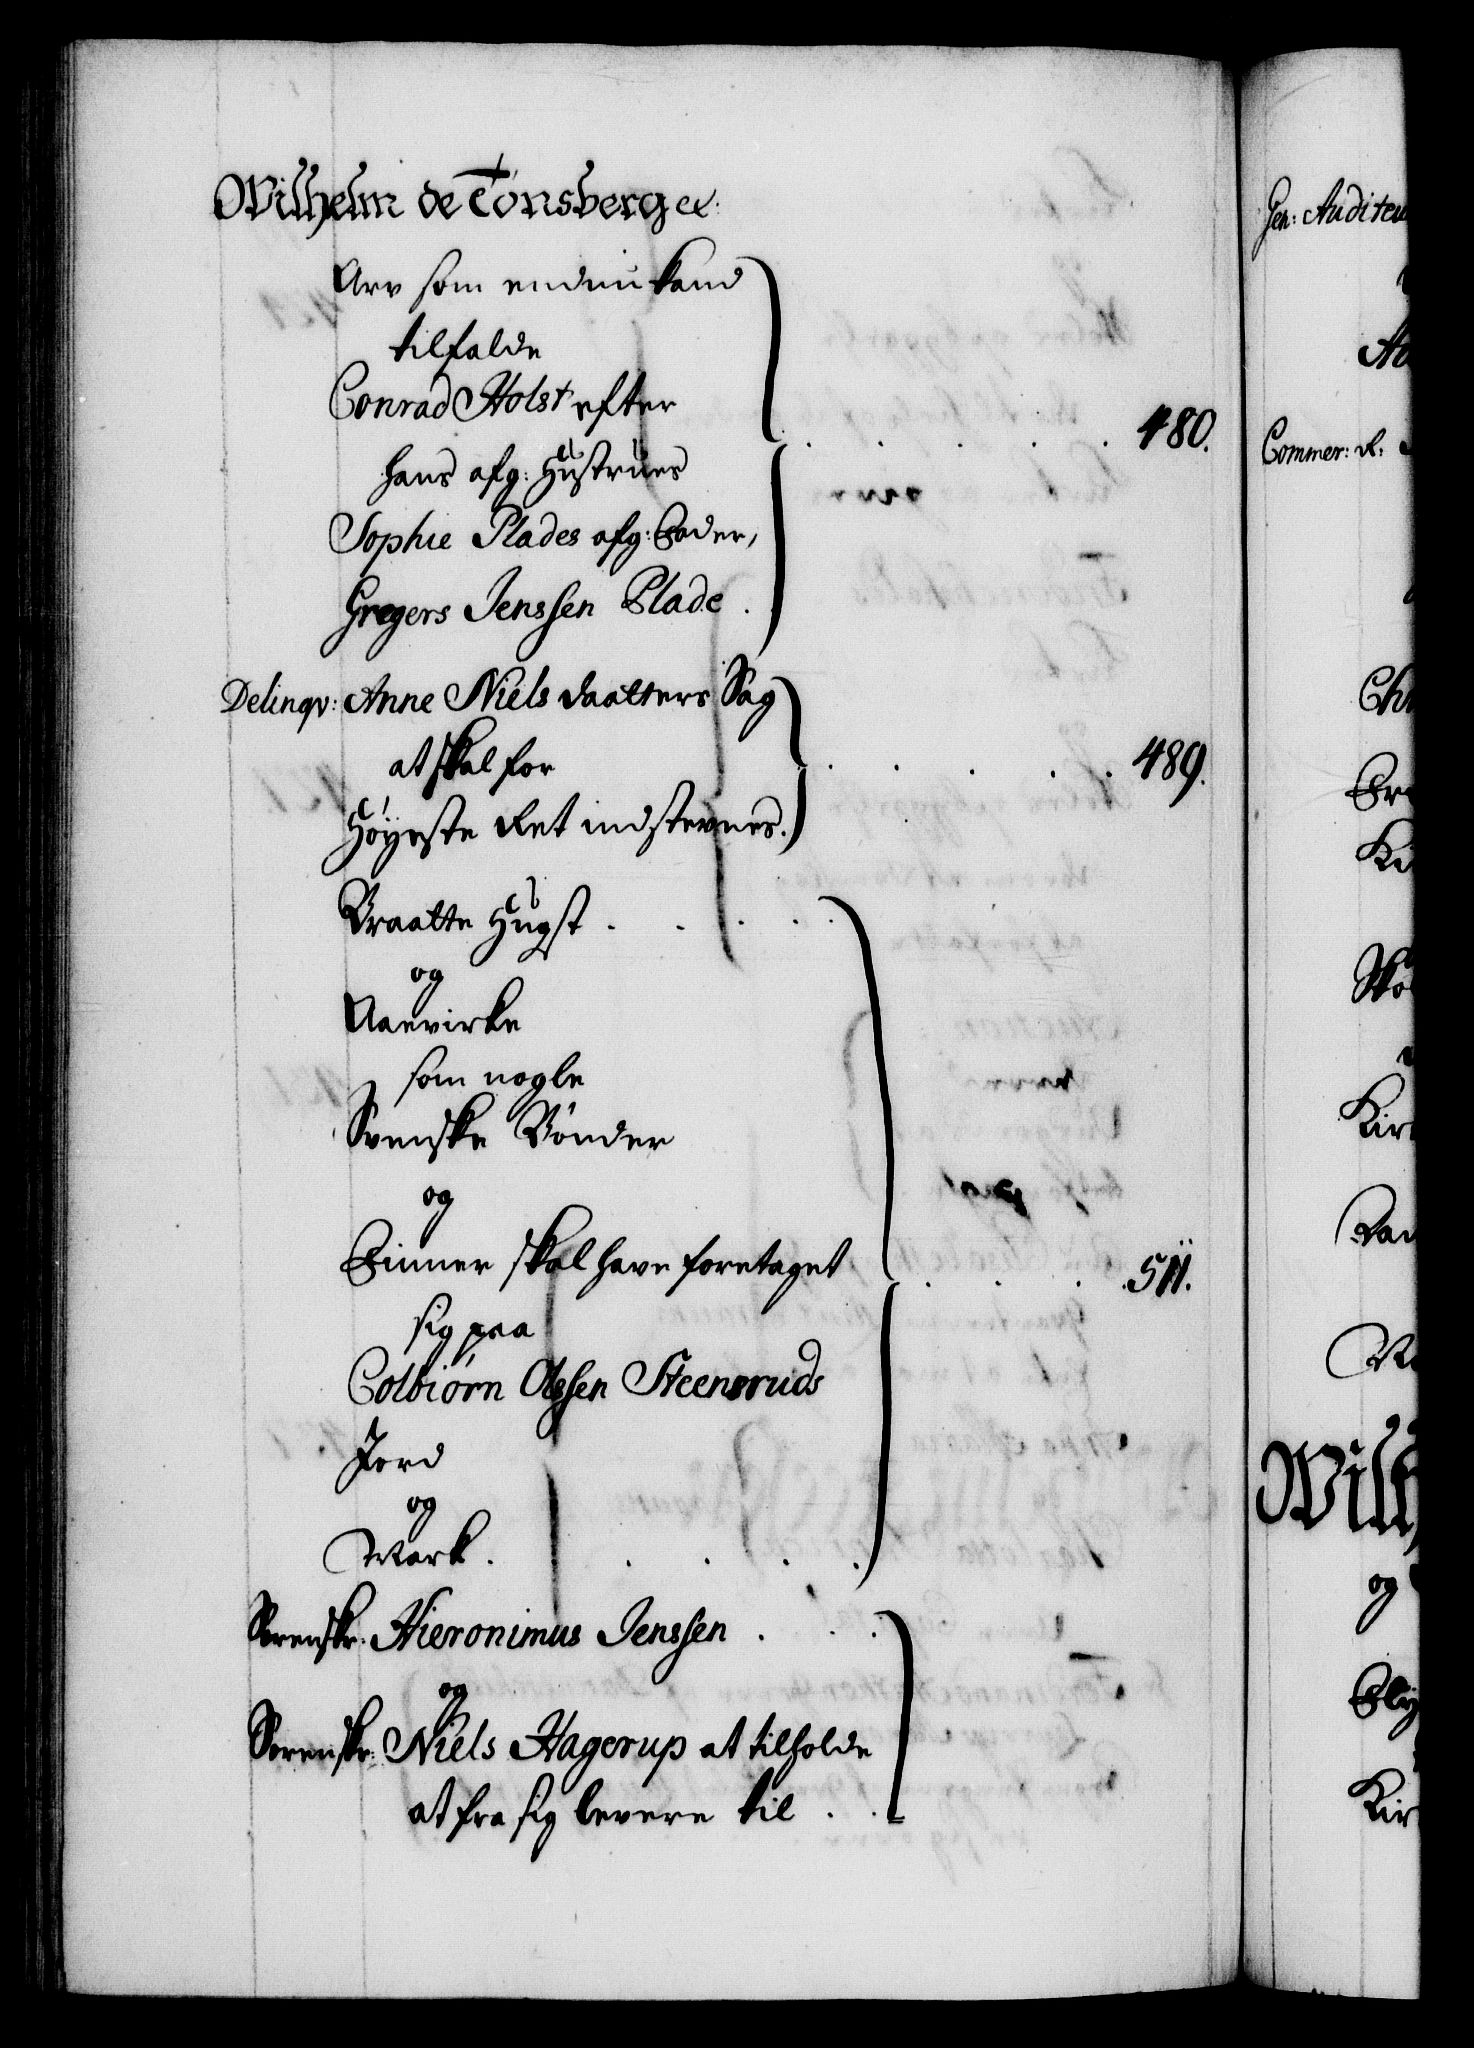 Wilhelm de Tønsberg etc:
Arv som endnu kand
tilfalde
Conrad Holst efter
hans afg: Hustrues
Sophie Plades afg: Fader,
Gregers Jenssen Plade . 480.
Delinqv: Anne Niels daatters Sag
at skal for
Høyeste Ret indstevnes. 489.
Braatte Hugst
og
Aaevirke
som nogle
Svenske Bønder
og
Finner skal have foretaget 511.
sig paa
Colbiørn Olssen Steensruds
Jord
og
Mark
Sorenskr: Hieronimus Jenssen
og
Sorenskr: Niels Hagerup at tilholde
at fra sig levere til
Gen: Auditeu
Commer: R:
Wilh
og